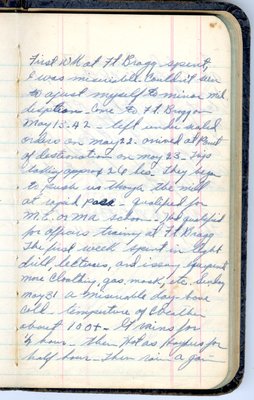 First Wk at Ft Bragg spent,
I was miserable Couldn't seem
to ajust myself to minor mil.
disiption. Came to Ft. Bragg on
May 15-42 - left under sealed
orders on May 22. arrived at Point
of destination on May 23. Trip
lasting approx 26 hrs. They began
to push us though the mill
at rapid pace - qualified for
M.P. or Ma school. - Also qualified
for officers training at Ft Bragg
The first week spent in light
drill, lectures, and issuing equipment
more Cloathing, gas, mask, etc. Sunday
May 31 a miserable day - have
cold - temperture of weather
about 100+ - It rains for
½ hour - then Hot as Hayties for
half hour - then rain a ga-